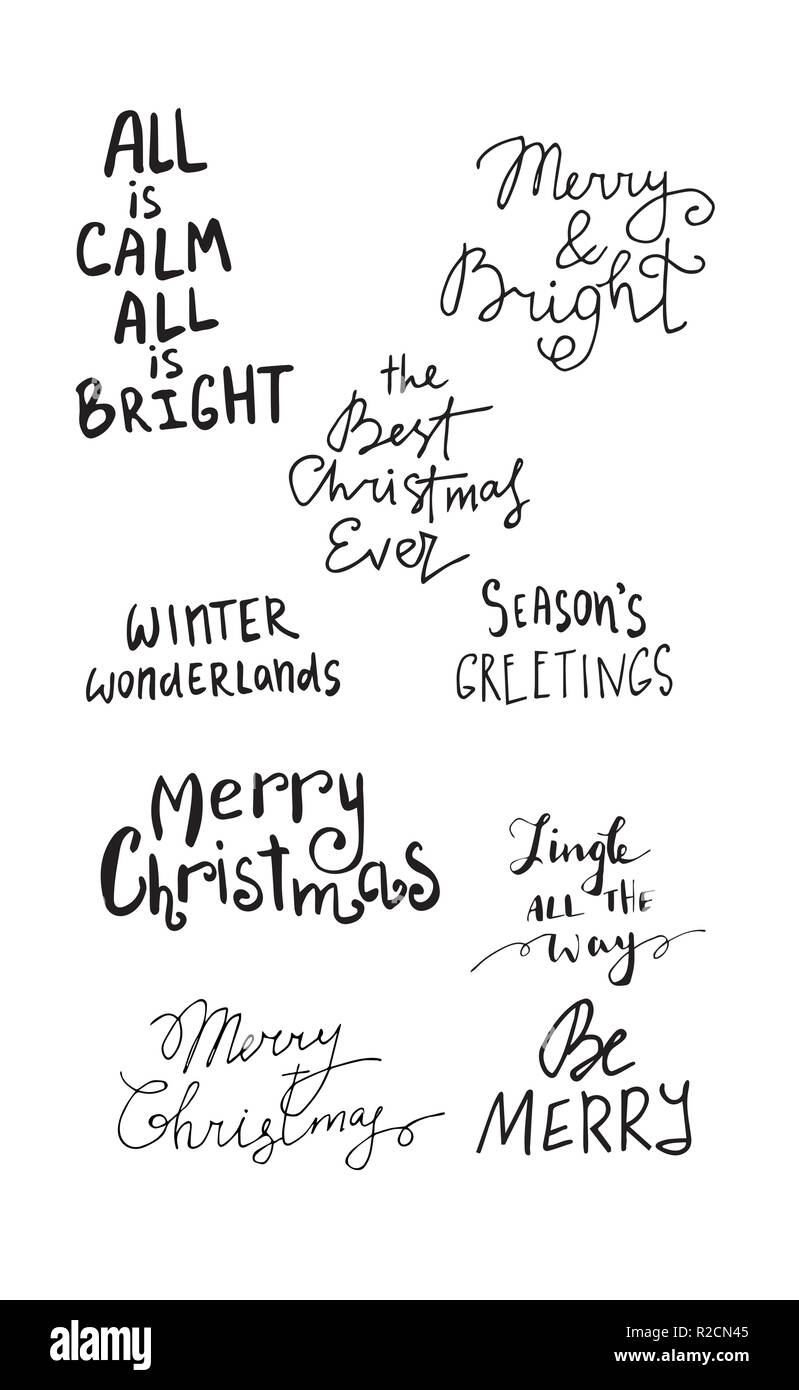 ALL
is
CALM
ALL
is
BRIGHT
Merry
&
Bright
the
Best
Christmas
Ever
WINTER
WONDERLANDS
SEASON'S
GREETINGS
Merry
Christmas
Jingle
ALL THE
Way
Merry
Christmas
Be
MERRY
alamy
Image ID: R2CN45
www.alamy.com